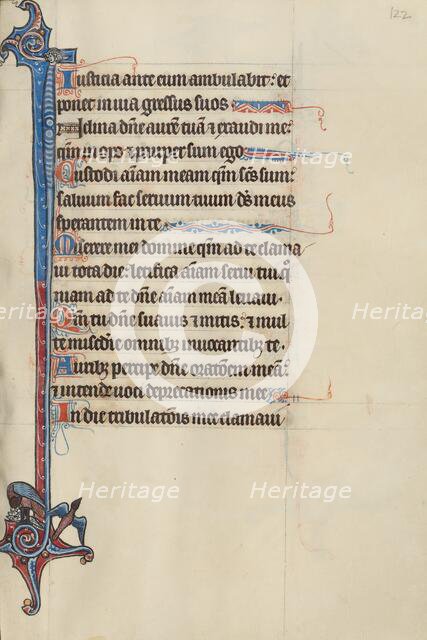 122
Iusticia ante eum ambulabit: et
ponet in uia gressus suos
Inclina dñe aurem tuã ⁊ exaudi me:
qm̃ inops ⁊ pauper sum ego
Custodi aĩam meam qm̃ sc̃s sum:
saluum fac seruum tuum ds̃ meus
sperantem in te
Miserere mei domine qm̃ ad te clama
ui tota die: letifica aĩam serui tui qͦ
niam ad te dñe aĩam meã leuaui
Qm̃ tu dñe suauis ⁊ mitis: ⁊ mul
te mis̃cdie omnibꝫ inuocantibꝫ te
Auribꝫ percipe dñe oratõem meã:
⁊ intende uoci deprecationis mee
In die tribulatõis mee clamaui
Heritage
Heritage
Heritage
Heritage
Heritage
Heritage